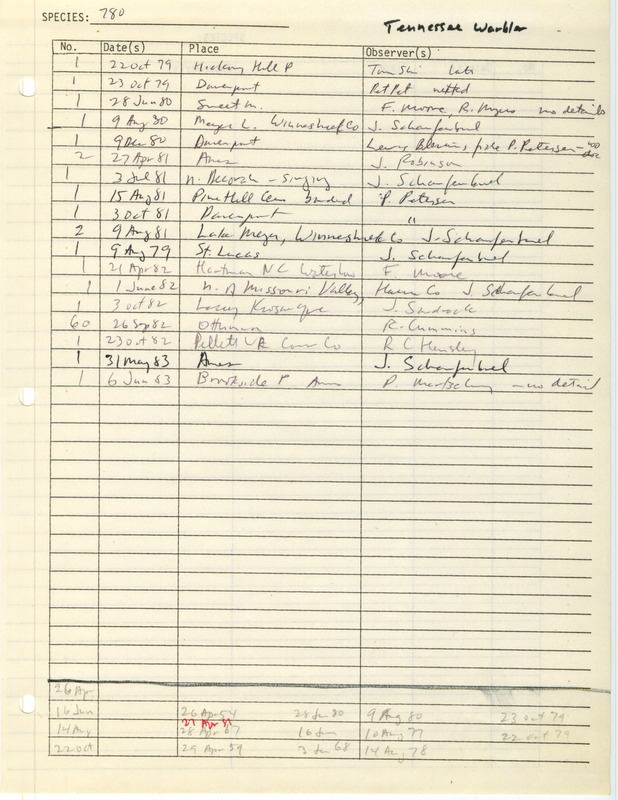 SPECIES: 780
Tennessee Warbler
No. Date(s) Place Observer(s)
1 22 Oct 79 Hickory Hill P Tom Shi late
1 23 Oct 79 Davenport Pet Pet netted
1 28 Jun 80 Sweet M. F. Moore, R. Myers no details
1 9 Aug 80 Meyer L. Winneshiek Co J. Schaufenbuel
1 9 Dec 80 Davenport Lewis Blevins, fide P. Petersen - no doc
2 27 Apr 81 Ames J. Robinson
1 3 Jul 81 N. Decorah - singing J. Schaufenbuel
1 15 Aug 81 Pine Hill Cem banded P. Petersen
1 3 Oct 81 Davenport "
2 9 Aug 81 Lake Meyer, Winneshiek Co J. Schaufenbuel
1 9 Aug 79 St. Lucas J. Schaufenbuel
1 21 Apr 82 Hartman NC Waterloo F. Moore
1 1 June 82 N. of Missouri Valley, Harr Co J. Schaufenbuel
1 3 Oct 82 Lacey Keosauqua J. Sandrock
60 26 Sep 82 Ottumwa R. Cummins
1 23 Oct 82 Pellett WR Cass Co R C Hensley
1 31 May 83 Ames J. Schaufenbuel
1 6 Jun 83 Brookside P Ames P. Martsching - no detail
26 Ap
16 Jun 26 Apr 54 28 Jun 80 9 Aug 80 23 Oct 79
27 Apr 81
14 Aug 28 Apr 67 16 Jun 10 Aug 77 22 Oct 79
22 Oct 29 Apr 59 3 Jun 68 14 Aug 78